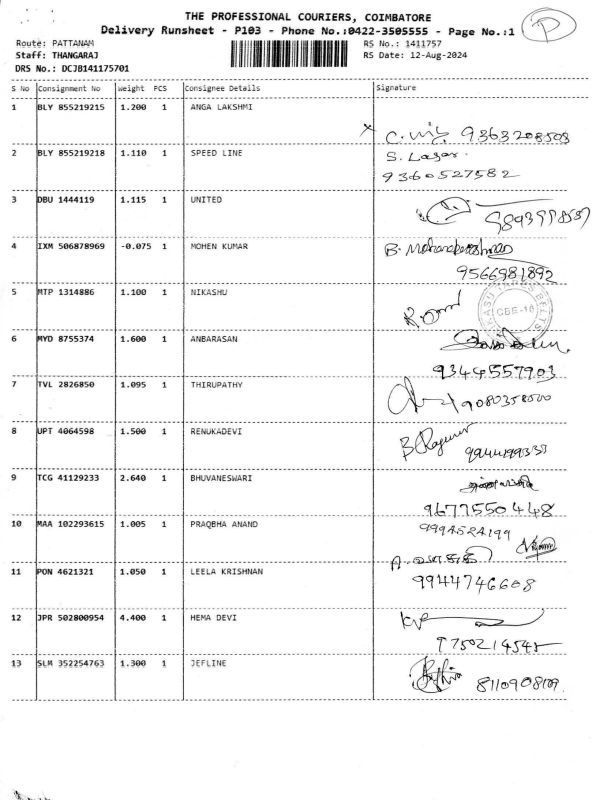 THE PROFESSIONAL COURIERS, COIMBATORE
Delivery Runsheet - P103 - Phone No.:0422-3505555 - Page No.:1
P
Route: PATTANAM RS No.: 1411757
Staff: THANGARAJ RS Date: 12-Aug-2024
DRS No.: DCJB141175701
S No Consignment No Weight PCS Consignee Details Signature
1 BLY 855219215 1.200 1 ANGA LAKSHMI
9363208503
2 BLY 855219218 1.110 1 SPEED LINE S. Lazar.
9360527582
3 DBU 1444119 1.115 1 UNITED
4 IXM 506878969 -0.075 1 MOHEN KUMAR
9566981892
5 MTP 1314886 1.100 1 NIKASHU
CBE-16
6 MYD 8755374 1.600 1 ANBARASAN
9344557903
7 TVL 2826850 1.095 1 THIRUPATHY
8 UPT 4064598 1.500 1 RENUKADEVI
9 TCG 41129233 2.640 1 BHUVANESWARI
9677550448
10 MAA 102293615 1.005 1 PRAQBHA ANAND
9994524199
11 PON 4621321 1.050 1 LEELA KRISHNAN
9944746608
12 JPR 502800954 4.400 1 HEMA DEVI
13 SLM 352254763 1.300 1 JEFLINE